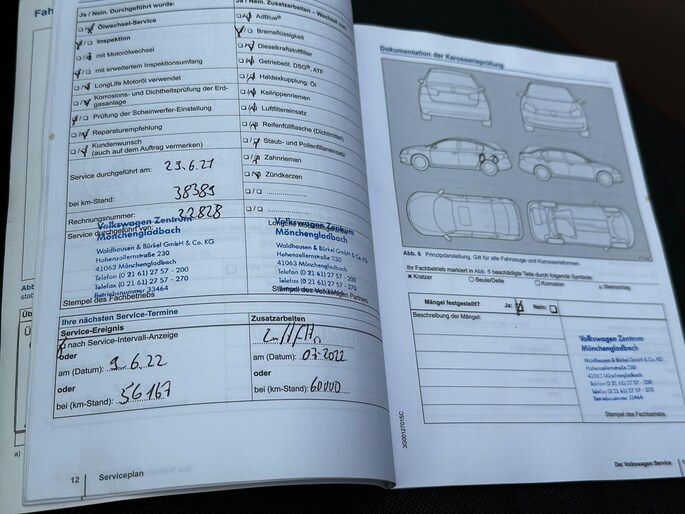 Fah
Ja / Nein. Durchgeführt wurde:
Ölwechsel-Service
Inspektion
mit Motorölwechsel
mit erweitertem Inspektionsumfang
LongLife Motoröl verwendet
Korrosions- und Dichtheitsprüfung der Erd-
gasanlage
Prüfung der Scheinwerfer-Einstellung
Reparaturempfehlung
Kundenwunsch
(auch auf dem Auftrag vermerken)
Service durchgeführt am: 29.6.21
bei km-Stand: 38389
Rechnungsnummer: 22828
Service durchgeführt von:
Volkswagen Zentrum
Mönchengladbach
Waldhausen & Bürkel GmbH & Co. KG
Hohenzollernstraße 230
41063 Mönchengladbach
Telefon (0 21 61) 27 57 - 200
Telefax (0 21 61) 27 57 - 230
Betriebsnummer 33464
Stempel des Fachbetriebs
Ja / Nein. Zusatzarbeiten – Wechsel von:
AdBlue®
Bremsflüssigkeit
Dieselkraftstofffilter
Getriebeöl: DSG®, ATF
Haldexkupplung: Öl
Keilrippenriemen
Luftfiltereinsatz
Reifenfüllflasche (Dichtmittel)
Staub- und Pollenfiltereinsatz
Zahnriemen
Zündkerzen
Volkswagen Zentrum
Mönchengladbach
Waldhausen & Bürkel GmbH & Co. KG
Hohenzollernstraße 230
41063 Mönchengladbach
Telefon (0 21 61) 27 57 - 200
Telefax (0 21 61) 27 57 - 230
Betriebsnummer 33464
Stempel des Volkswagen Partners
Ihre nächsten Service-Termine
Service-Ereignis
nach Service-Intervall-Anzeige
oder
am (Datum): 9.6.22
oder
bei (km-Stand): 56167
Zusatzarbeiten
am (Datum): 07.2022
oder
bei (km-Stand): 60000
12 Serviceplan
a)
Dokumentation der Karosserieprüfung
Abb. 6 Prinzipdarstellung. Gilt für alle Fahrzeuge und Karosserieformen.
Ihr Fachbetrieb markiert in Abb. 6 beschädigte Teile durch folgende Symbole:
Kratzer Beule/Delle Korrosion Steinschlag
Mängel festgestellt? Ja: Nein:
Beschreibung der Mängel:
Volkswagen Zentrum
Mönchengladbach
Waldhausen & Bürkel GmbH & Co. KG
Hohenzollernstraße 230
41063 Mönchengladbach
Telefon (0 21 61) 27 57 - 200
Telefax (0 21 61) 27 57 - 230
Betriebsnummer 33464
Stempel des Fachbetriebs
3G0012701SC
Der Volkswagen Service